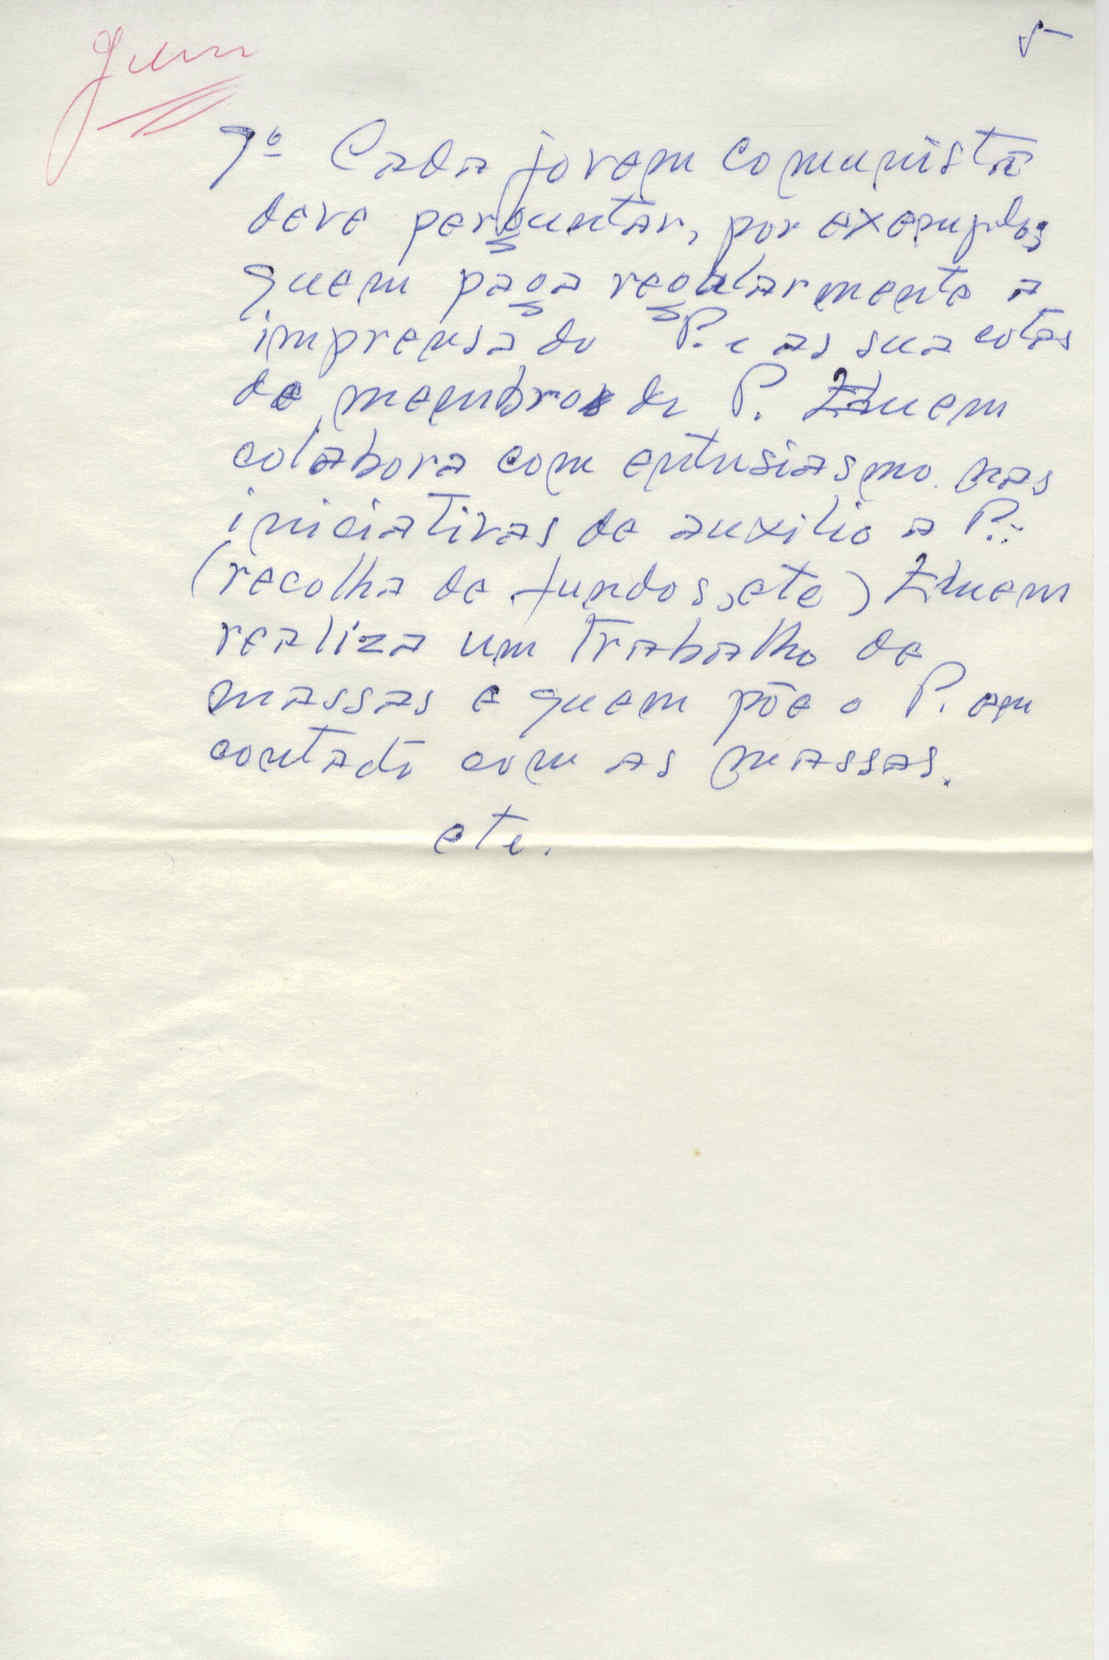 5
7º Cada jovem comunista
deve perguntar, por exemplo,
quem paga regularmente a
imprensa do P. e as sua cotas
de membro do P. Quem
colabora com entusiasmo nas
iniciativas de auxilio a P.:
(recolha de fundos, etc) Quem
realiza um trabalho de
massas e quem põe o P. em
contato com as massas.
etc.